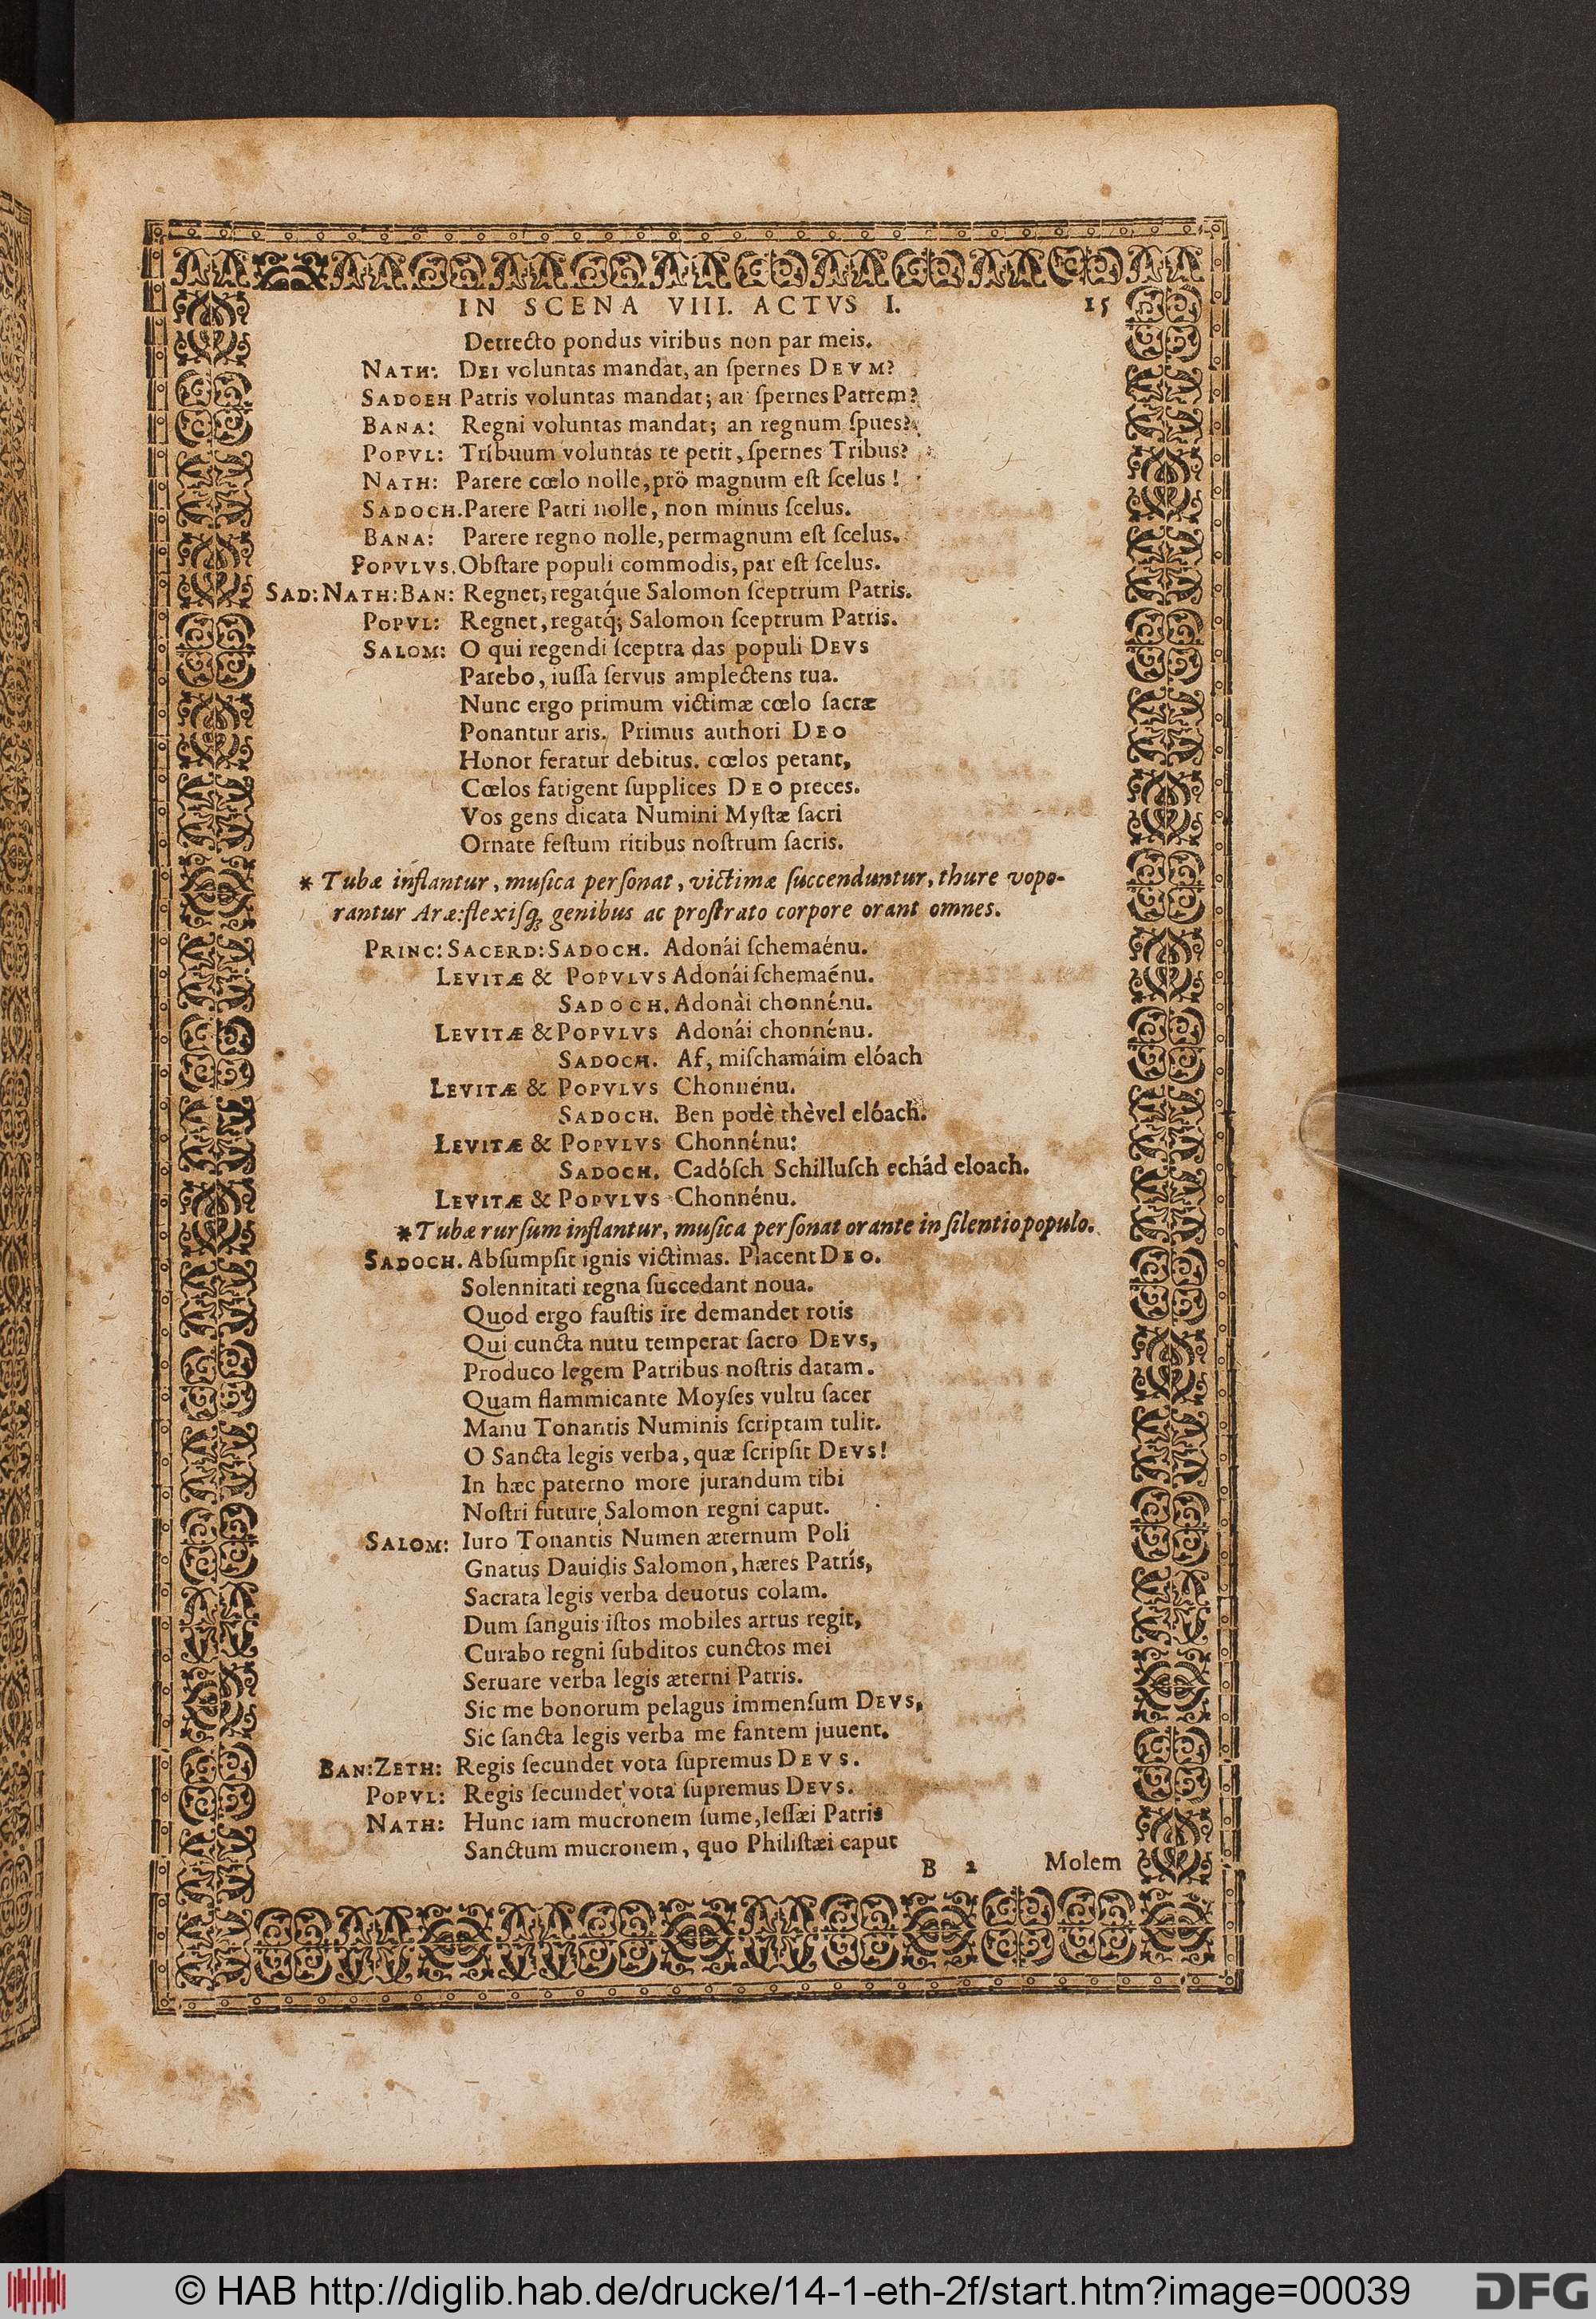 IN SCENA VIII. ACTVS I. 15
Detrecto pondus viribus non par meis.
NATH: DEI voluntas mandat, an ſpernes DEVM?
SADOEH Patris voluntas mandat; an ſpernes Patrem?
BANA: Regni voluntas mandat; an regnum ſpues?
POPVL: Tribuum voluntas te petit, ſpernes Tribus?
NATH: Parere cœlo nolle, prö magnum eſt ſcelus!
SADOCH. Parere Patri nolle, non minus ſcelus.
BANA: Parere regno nolle, permagnum eſt ſcelus.
POPVLVS. Obſtare populi commodis, par eſt ſcelus.
SAD: NATH: BAN: Regnet, regatq́ue Salomon ſceptrum Patris.
POPVL: Regnet, regatq́; Salomon ſceptrum Patris.
SALOM: O qui regendi ſceptra das populi DEVS
Parebo, iuſſa ſervus amplectens tua.
Nunc ergo primum victimæ cœlo ſacræ
Ponantur aris. Primus authori DEO
Honor feratur debitus. cœlos petant,
Cœlos fatigent ſupplices DEO preces.
Vos gens dicata Numini Myſtæ ſacri
Ornate feſtum ritibus noſtrum ſacris.
* Tubæ inflantur, muſica perſonat, victimæ ſuccenduntur, thure vopo-
rantur Aræ: flexiſq; genibus ac proſtrato corpore orant omnes.
PRINC: SACERD: SADOCH. Adonái ſchemaénu.
LEVITÆ & POPVLVS Adonái ſchemaénu.
SADOCH. Adonài chonnénu.
LEVITÆ & POPVLVS Adonái chonnénu.
SADOCH. Af, miſchamáim elóach
LEVITÆ & POPVLVS Chonnénu.
SADOCH. Ben podè thèvel elóach.
LEVITÆ & POPVLVS Chonnénu:
SADOCH. Cadóſch Schilluſch echád eloach.
LEVITÆ & POPVLVS Chonnénu.
* Tubæ rurſum inflantur, muſica perſonat orante in ſilentio populo.
SADOCH. Abſumpſit ignis victimas. Placent DEO.
Solennitati regna ſuccedant noua.
Quod ergo fauſtis ire demandet rotis
Qui cuncta nutu temperat ſacro DEVS,
Produco legem Patribus noſtris datam.
Quam flammicante Moyſes vultu ſacer
Manu Tonantis Numinis ſcriptam tulit.
O Sancta legis verba, quæ ſcripſit DEVS!
In hæc paterno more jurandum tibi
Noſtri future Salomon regni caput.
SALOM: Iuro Tonantis Numen æternum Poli
Gnatus Dauidis Salomon, hæres Patris,
Sacrata legis verba deuotus colam.
Dum ſanguis iſtos mobiles artus regit,
Curabo regni ſubditos cunctos mei
Seruare verba legis æterni Patris.
Sic me bonorum pelagus immenſum DEVS,
Sic ſancta legis verba me fantem juuent.
BAN: ZETH: Regis ſecundet vota ſupremus DEVS.
POPVL: Regis ſecundet vota ſupremus DEVS.
NATH: Hunc iam mucronem ſume, Ieſſæi Patris
Sanctum mucronem, quo Philiſtæi caput
B 2 Molem
© HAB http://diglib.hab.de/drucke/14-1-eth-2f/start.htm?image=00039
DFG